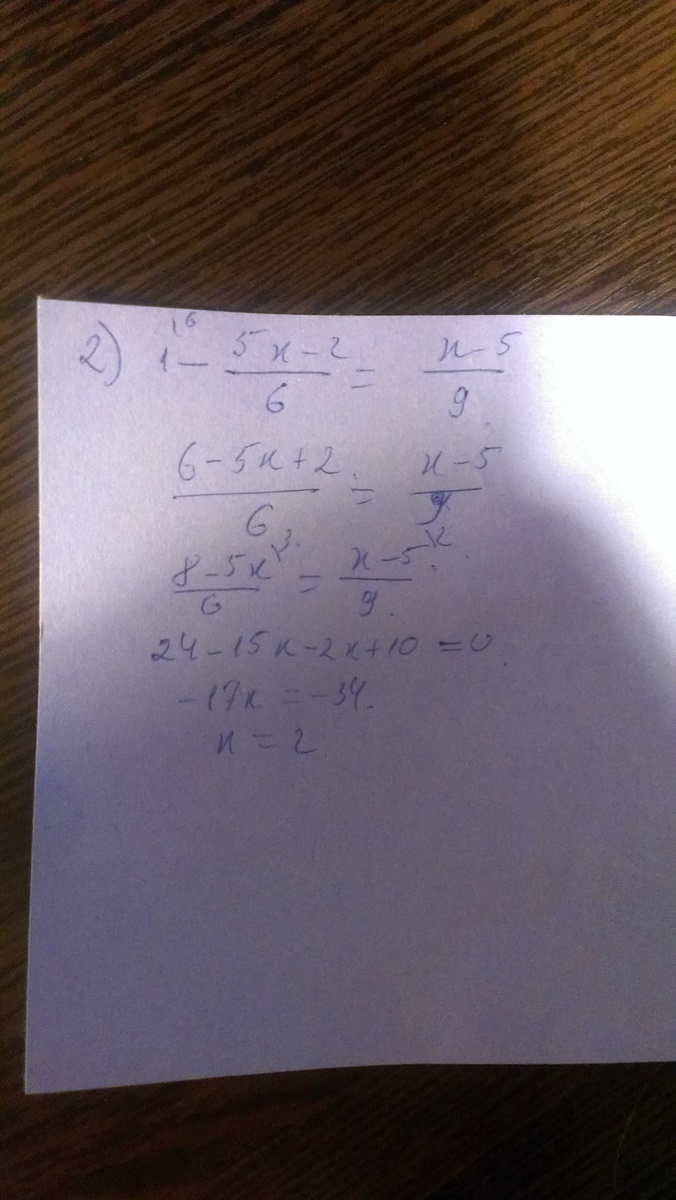 2) 1\6 − (5x−2)/6 = (x−5)/9
(6−5x+2)/6 = (x−5)/9
(8−5x)/6 \3 = (x−5)/9 \2
24−15x−2x+10=0
−17x=−34.
x=2